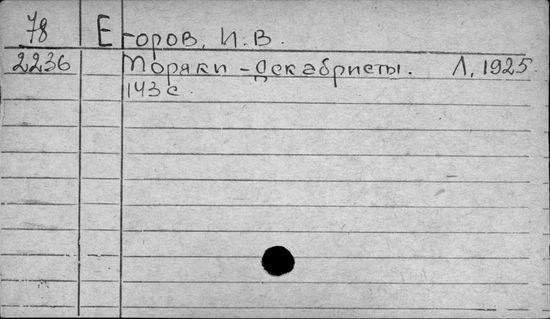 78 Егоров, И. В.
2236 Моряки - декабристы. Л, 1925.
143 с.